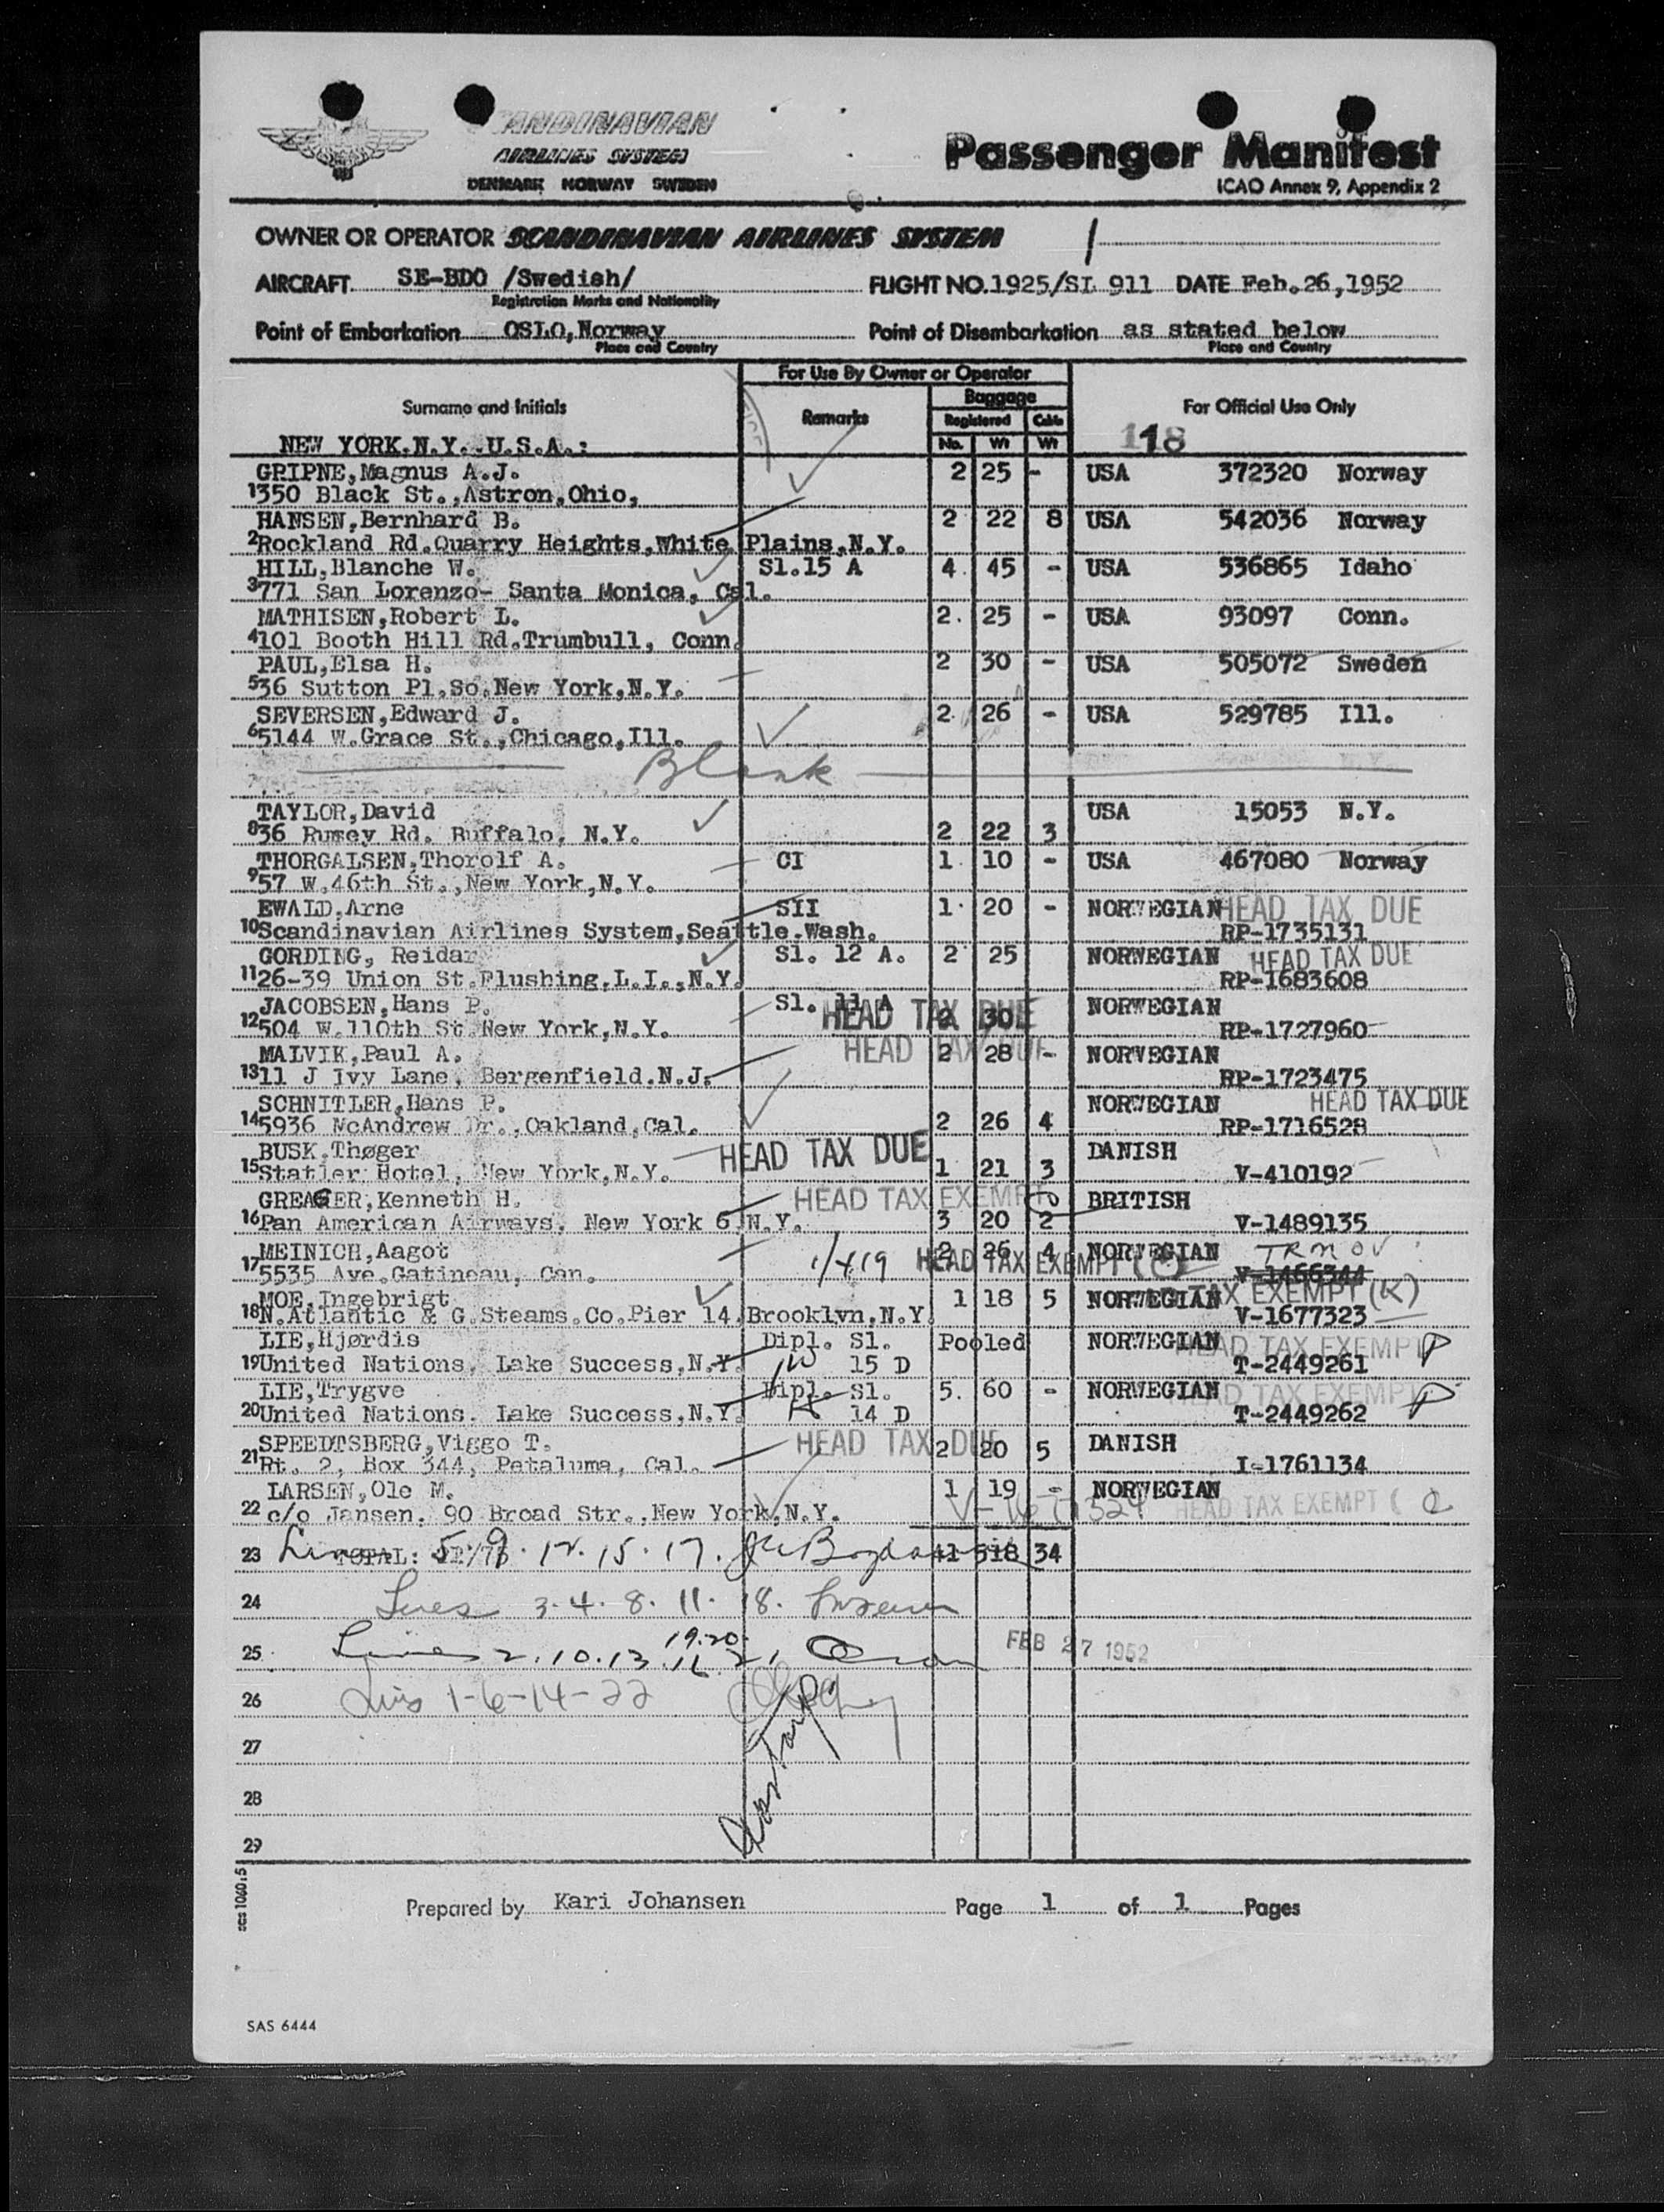 SCANDINAVIAN
AIRLINES SYSTEM
DENMARK NORWAY SWEDEN
Passenger Manifest
ICAO Annex 9, Appendix 2
OWNER OR OPERATOR SCANDINAVIAN AIRLINES SYSTEM
AIRCRAFT SE-BDO /Swedish/ FLIGHT NO. 1925/SI 911 DATE Feb.26,1952
Registration Marks and Nationality
Point of Embarkation OSLO,Norway Point of Disembarkation as stated below
Place and Country Place and Country
For Use By Owner or Operator
Surname and Initials Remarks Baggage For Official Use Only
Registered Cabin
NEW YORK.N.Y..U.S.A.: No. Wt Wt 118
GRIPNE,Magnus A.J. 2 25 - USA 372320 Norway
1350 Black St.,Astron,Ohio,
HANSEN,Bernhard B. 2 22 8 USA 542036 Norway
2 Rockland Rd.Quarry Heights,White Plains,N.Y.
HILL,Blanche W. Sl.15 A 4 45 - USA 536865 Idaho
3 771 San Lorenzo- Santa Monica, Cal.
MATHISEN,Robert L. 2. 25 - USA 93097 Conn.
4 101 Booth Hill Rd.Trumbull, Conn.
PAUL,Elsa H. 2 30 - USA 505072 Sweden
5 36 Sutton Pl.So.New York,N.Y.
SEVERSEN,Edward J. 2. 26 - USA 529785 Ill.
6 5144 W.Grace St.,Chicago,Ill.
Blank
TAYLOR,David USA 15053 N.Y.
8 36 Rumsey Rd. Buffalo, N.Y. 2 22 3
THORGALSEN,Thorolf A. CI 1 10 - USA 467080 Norway
9 57 W.46th St.,New York,N.Y.
EWALD,Arne SII 1 20 - NORWEGIAN HEAD TAX DUE
10 Scandinavian Airlines System,Seattle.Wash. RP-1735131
GORDING, Reidar Sl. 12 A. 2 25 NORWEGIAN HEAD TAX DUE
11 26-39 Union St.Flushing.L.I.,N.Y. RP-1683608
JACOBSEN,Hans P. Sl. 11 A NORWEGIAN
12 504 W.110th St.New York,N.Y. HEAD TAX DUE 2 30 RP-1727960
MALVIK,Paul A. HEAD TAX DUE 2 28 - NORWEGIAN
13 11 J Ivy Lane, Bergenfield.N.J. RP-1723475
SCHNITLER,Hans P. NORWEGIAN HEAD TAX DUE
14 5936 McAndrew Dr.,Oakland,Cal. 2 26 4 RP-1716528
BUSK,Thøger HEAD TAX DUE DANISH
15 Statler Hotel, New York,N.Y. 1 21 3 V-410192
GREAGER,Kenneth H. HEAD TAX EXEMPT BRITISH
16 Pan American Airways, New York 6 N.Y. 3 20 2 V-1489135
MEINICH,Aagot 2 26 4 NORWEGIAN
17 5535 Ave.Gatineau, Can. 1/419 HEAD TAX EXEMPT V-1466344
MOE,Ingebrigt 1 18 5 NORWEGIAN TAX EXEMPT (K)
18 N.Atlantic & G.Steams.Co.Pier 14,Brooklyn,N.Y. V-1677323
LIE,Hjørdis Dipl. Sl. Pooled NORWEGIAN HEAD TAX EXEMPT P
19 United Nations, Lake Success,N.Y. 15 D T-2449261
LIE,Trygve Dipl. Sl. 5. 60 - NORWEGIAN HEAD TAX EXEMPT P
20 United Nations. Lake Success,N.Y. 14 D T-2449262
SPEEDTSBERG,Viggo T. HEAD TAX DUE 2 20 5 DANISH
21 Rt. 2, Box 344, Petaluma, Cal. I-1761134
LARSEN,Ole M. 1 19 - NORWEGIAN
22 c/o Jansen. 90 Broad Str.,New York,N.Y. HEAD TAX EXEMPT (
23 TOTAL: 5.9.12.15.17. 41 518 34
24 Lines 3-4.8.11.18.
25 Lines 2.10.13.16 19.20. 21 FEB 27 1952
26 Lines 1-6-14-22
27
28
29
scs 1060:5
Prepared by Kari Johansen Page 1 of 1 Pages
SAS 6444